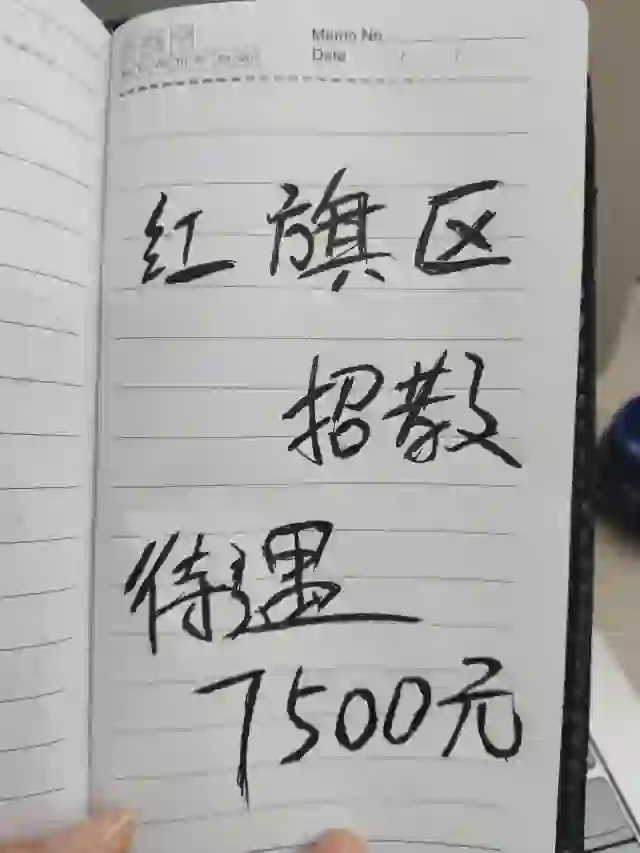 Memo No.
Date / /
红旗区
招教
待遇
7500元